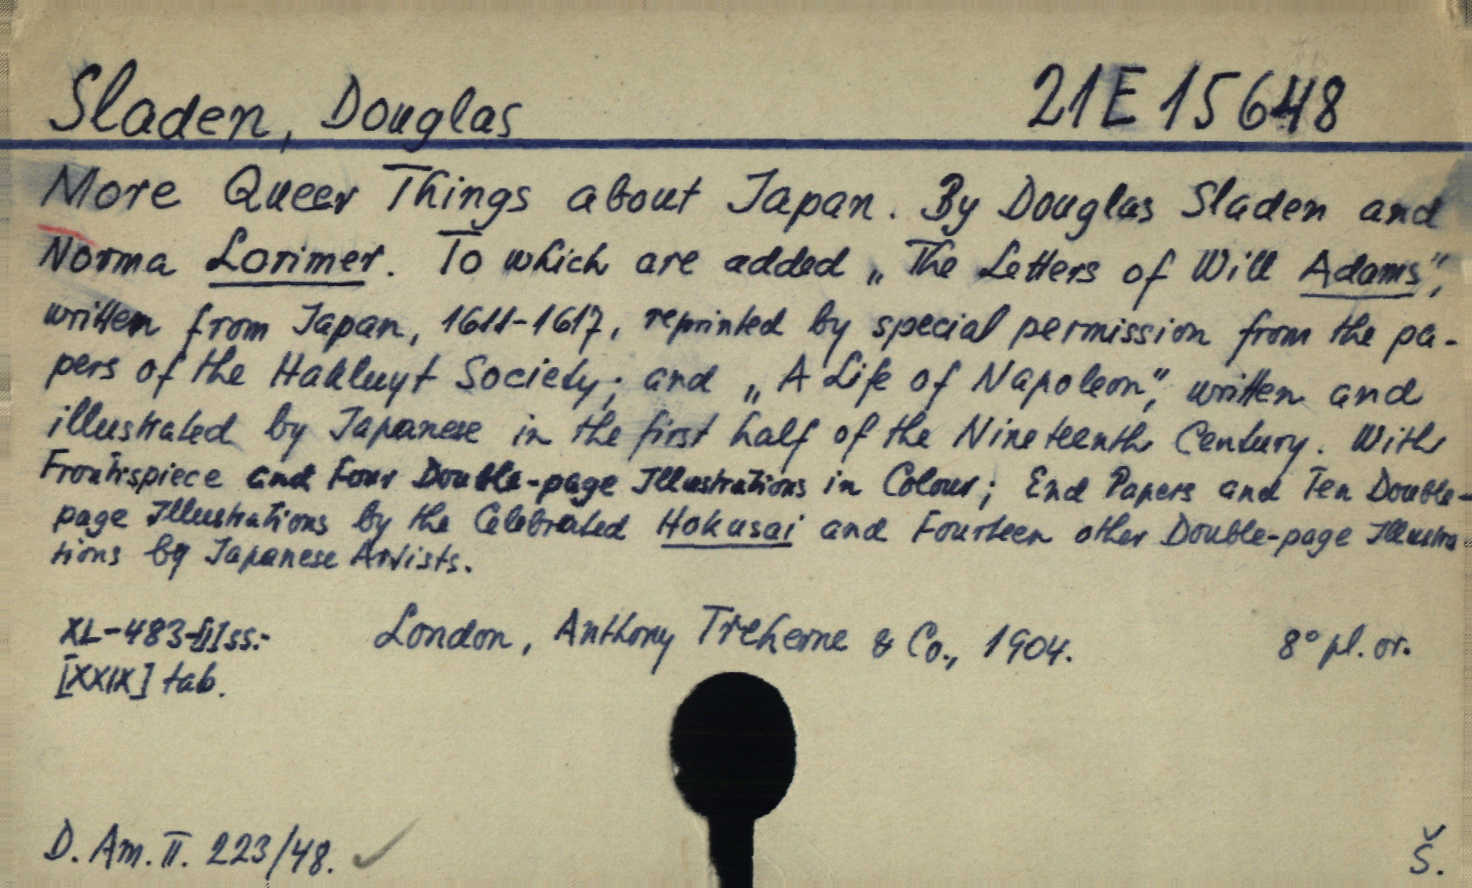 Sladen, Douglas 21 E 15648
More Queer Things about Japan. By Douglas Sladen and
Norma Lorimer. To which are added „The Letters of Will Adams",
written from Japan, 1611-1617, reprinted by special permission from the pa-
pers of the Hakluyt Society; and „A Life of Napoleon", written and
illustrated by Japanese in the first half of the Nineteenth Century. With
Frontispiece and Four Double-page Illustrations in Colour; End Papers and Ten Double-
page Illustrations by the Celebrated Hokusai and Fourteen other Double-page Illustra-
tions by Japanese Artists.
XL-483-[1] ss.- London, Anthony Treherne & Co., 1904. 8° pl. or.
[XXIX] tab.
D. Am. II. 223/48. ✓ Š.